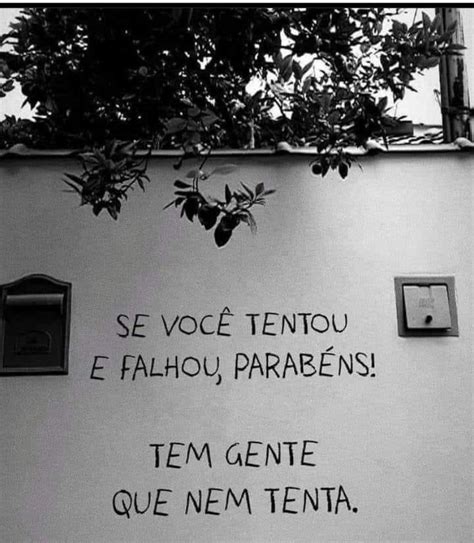 SE VOCÊ TENTOU
E FALHOU, PARABÉNS!
TEM GENTE
QUE NEM TENTA.